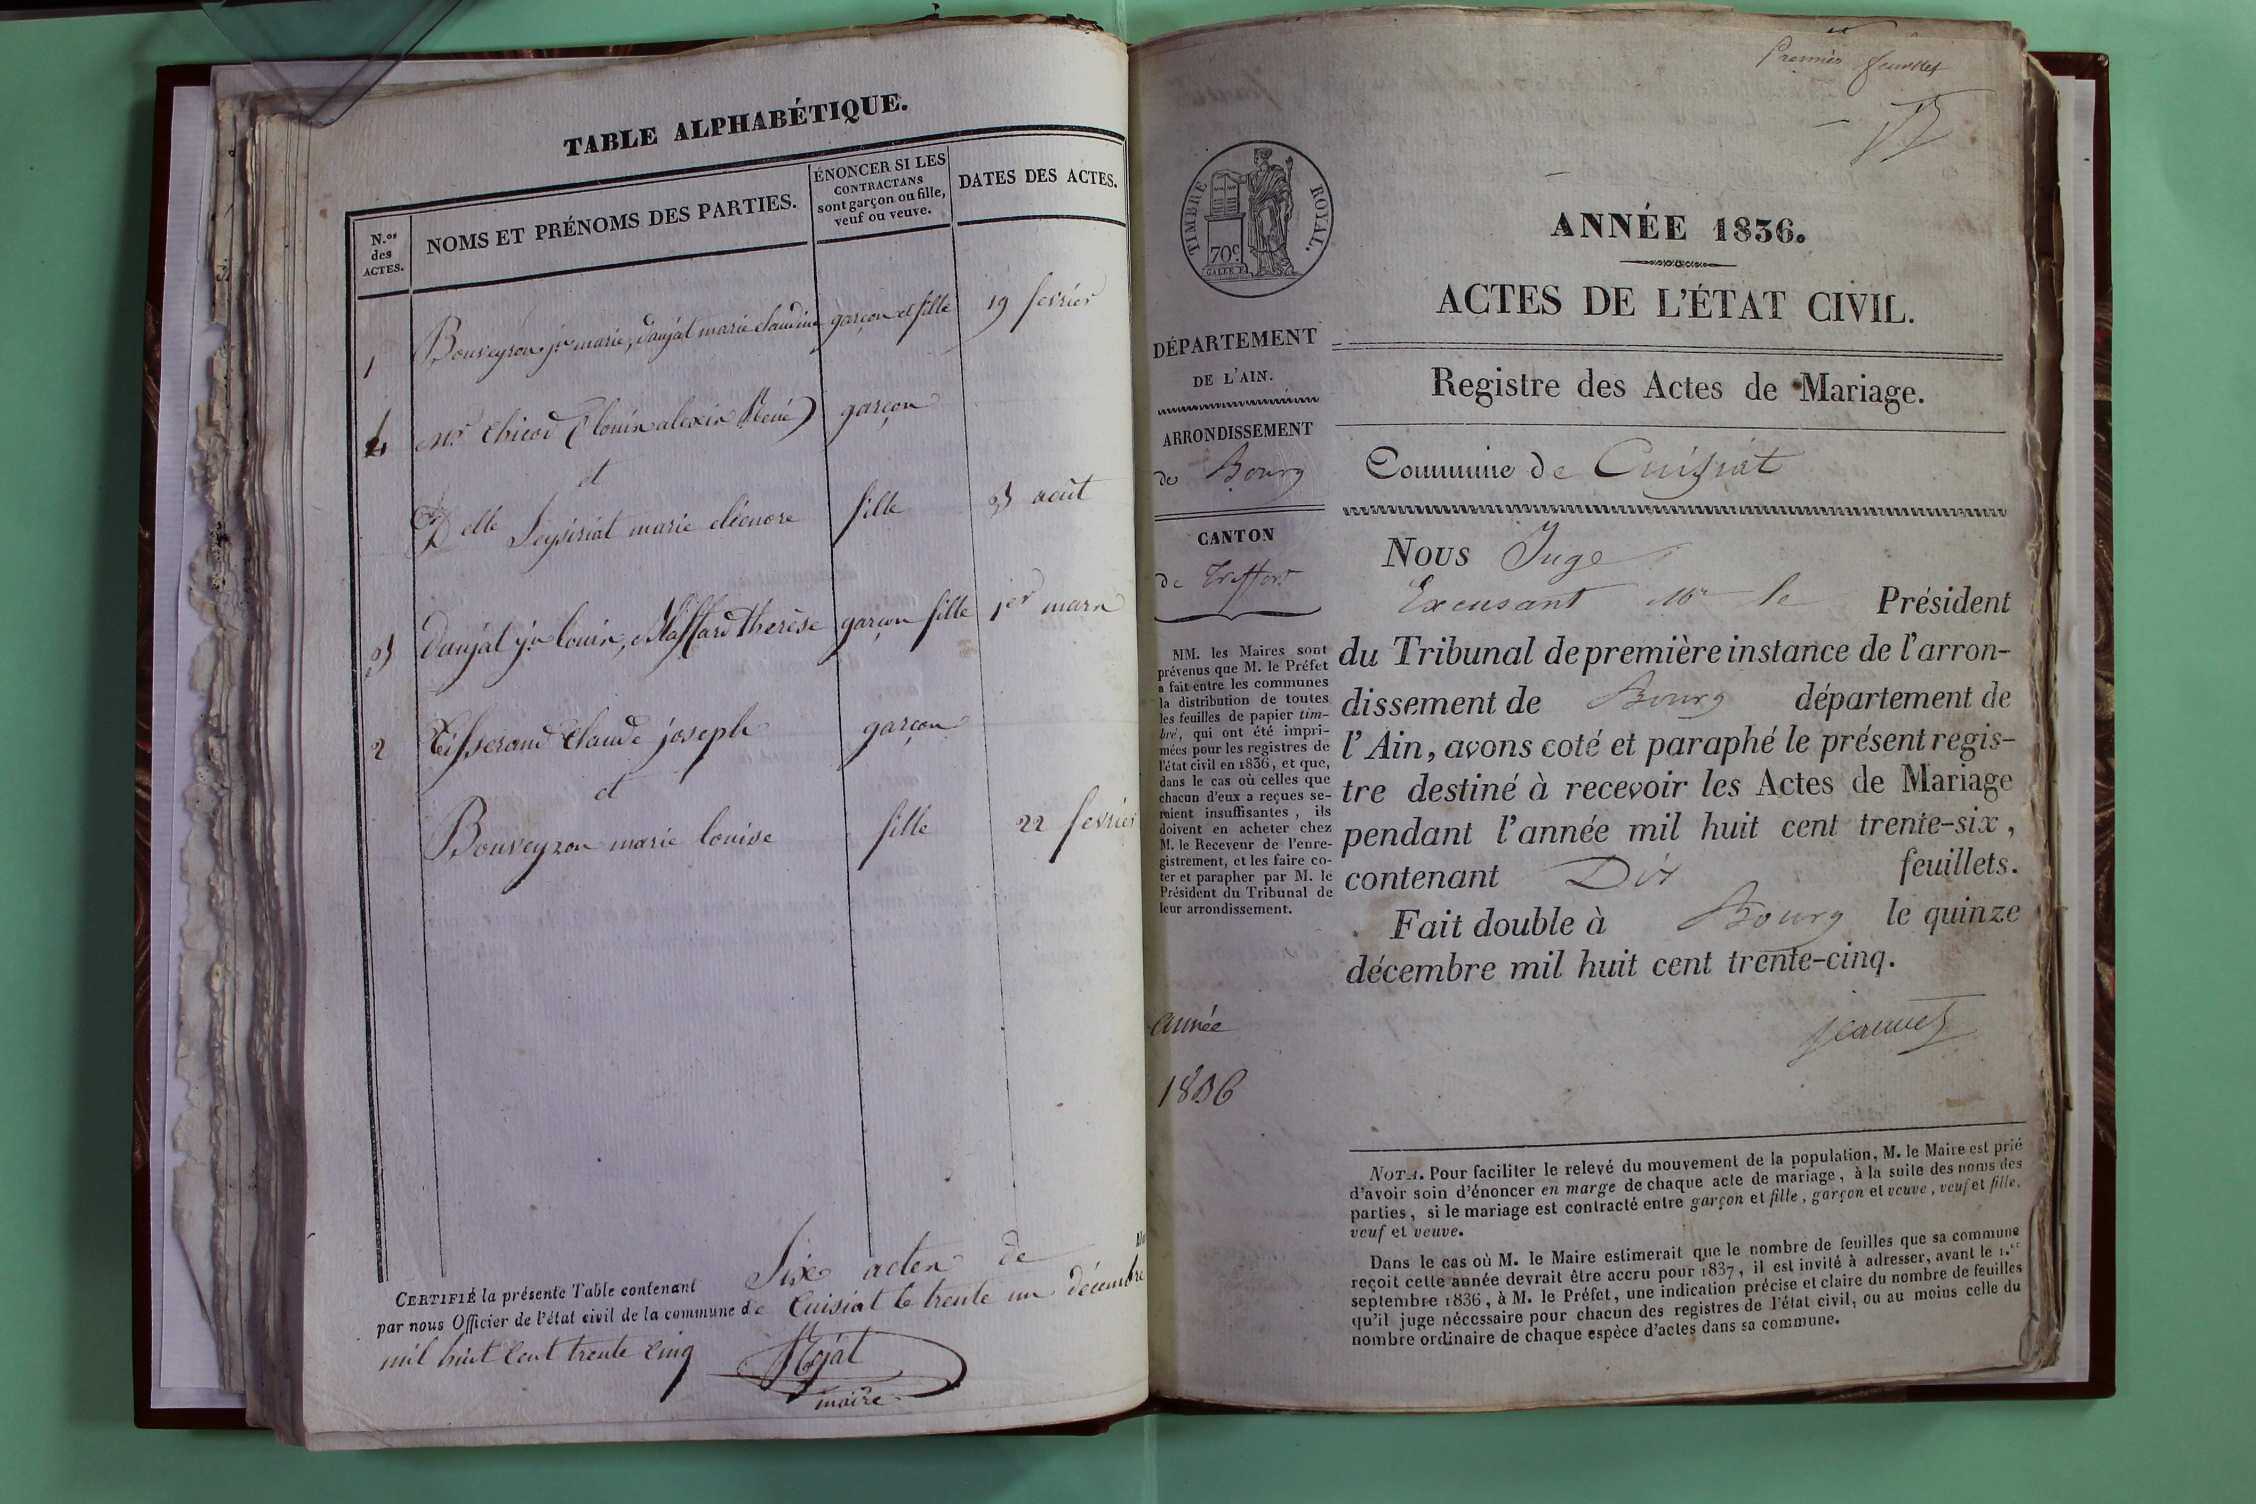 TABLE ALPHABÉTIQUE.
N.os des ACTES.
NOMS ET PRÉNOMS DES PARTIES.
ÉNONCER SI LES
CONTRACTANS
sont garçon ou fille,
veuf ou veuve.
DATES DES ACTES.
1 Bouveyron jn marie, daujat marie claudine garçon et fille 19 fevrier
4 Mr Chicod louis alexis René garçon
et
Delle Seysiriat marie eléonore fille 3 août
3 daujat jn louis, Maffard therèse garçon fille 1er mars
2 Tisserand Claude joseph garçon
et
Bouveyron marie louise fille 22 fevrier
CERTIFIÉ la présente Table contenant Six actes de
par nous Officier de l'état civil de la commune de Cuisiat le trente un décembre
mil huit cent trente cinq
maire
Premier feuillet
TIMBRE ROYAL.
70c.
ANNÉE 1836.
ACTES DE L'ÉTAT CIVIL.
Registre des Actes de Mariage.
Commune de Cuisiat
DÉPARTEMENT
DE L'AIN.
ARRONDISSEMENT
de Bourg
CANTON
de Treffort
MM. les Maires sont
prévenus que M. le Préfet
a fait entre les communes
la distribution de toutes
les feuilles de papier tim-
bré, qui ont été impri-
mées pour les registres de
l'état civil en 1836, et que,
dans le cas où celles que
chacun d'eux a reçues se-
raient insuffisantes, ils
doivent en acheter chez
M. le Receveur de l'enre-
gistrement, et les faire co-
ter et parapher par M. le
Président du Tribunal de
leur arrondissement.
année
1836
Nous Juge
Excusant Mr le Président
du Tribunal de première instance de l'arron-
dissement de Bourg département de
l'Ain, avons coté et paraphé le présent regis-
tre destiné à recevoir les Actes de Mariage
pendant l'année mil huit cent trente-six,
contenant Dix feuillets.
Fait double à Bourg le quinze
décembre mil huit cent trente-cinq.
NOTA. Pour faciliter le relevé du mouvement de la population, M. le Maire est prié
d'avoir soin d'énoncer en marge de chaque acte de mariage, à la suite des noms des
parties, si le mariage est contracté entre garçon et fille, garçon et veuve, veuf et fille,
veuf et veuve.
Dans le cas où M. le Maire estimerait que le nombre de feuilles que sa commune
reçoit cette année devrait être accru pour 1837, il est invité à adresser, avant le 1.er
septembre 1836, à M. le Préfet, une indication précise et claire du nombre de feuilles
qu'il juge nécessaire pour chacun des registres de l'état civil, ou au moins celle du
nombre ordinaire de chaque espèce d'actes dans sa commune.